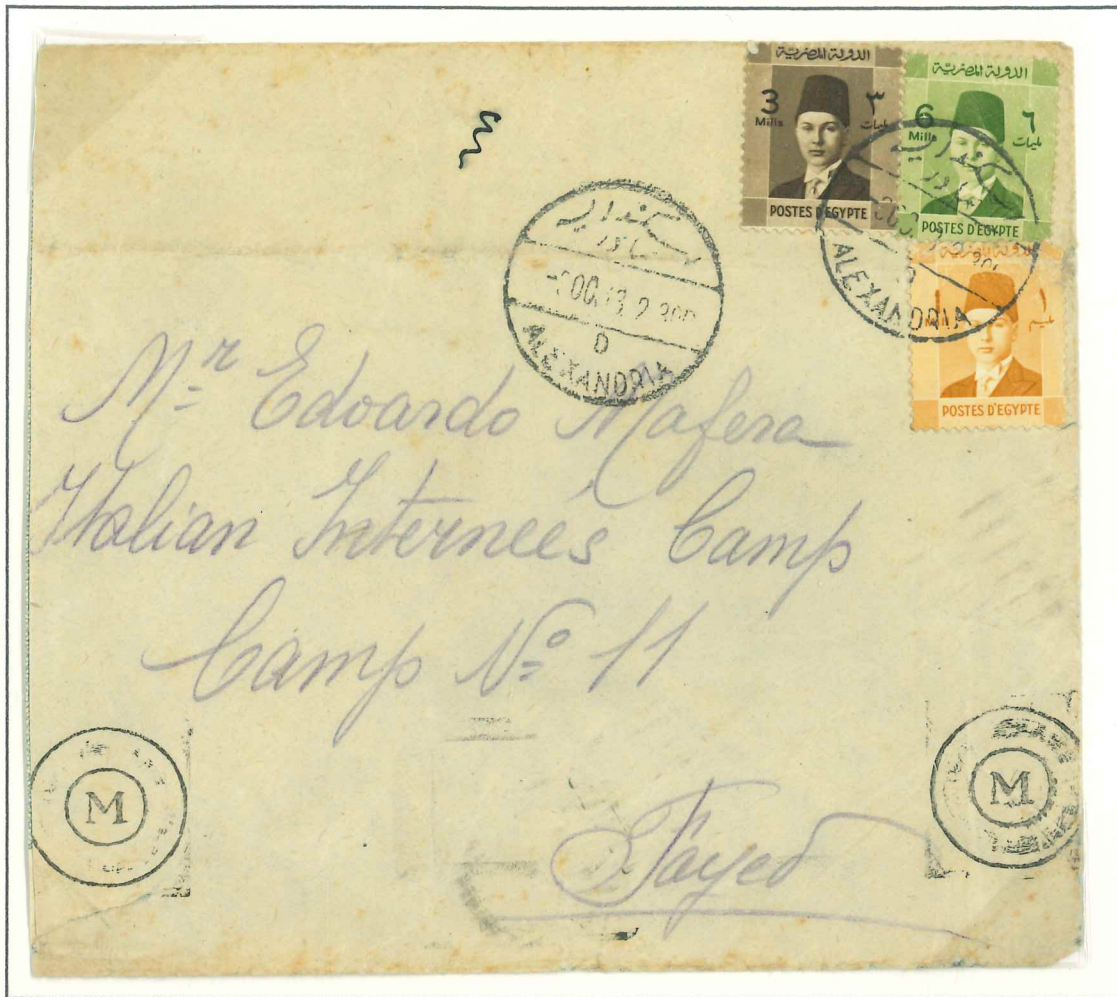 الدولة المصرية
3 ٣
Mills مليمات
POSTES D'EGYPTE
الدولة المصرية
6 ٦
Mills مليمات
POSTES D'EGYPTE
الدولة المصرية
١
مليم
POSTES D'EGYPTE
OC. 43. 2 30P
D
ALEXANDRIA
ALEXANDRIA
Mr Edoardo Mafera
Italian Internees Camp
Camp No 11
Fayed
M
M